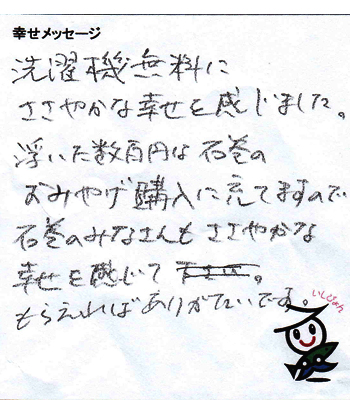 幸せメッセージ
洗濯機無料に
ささやかな幸せを感じました。
浮いた数百円は石巻の
おみやげ購入に充てますので
石巻のみなさんもささやかな
幸せを感じて
もらえればありがたいです。
いしぴょん